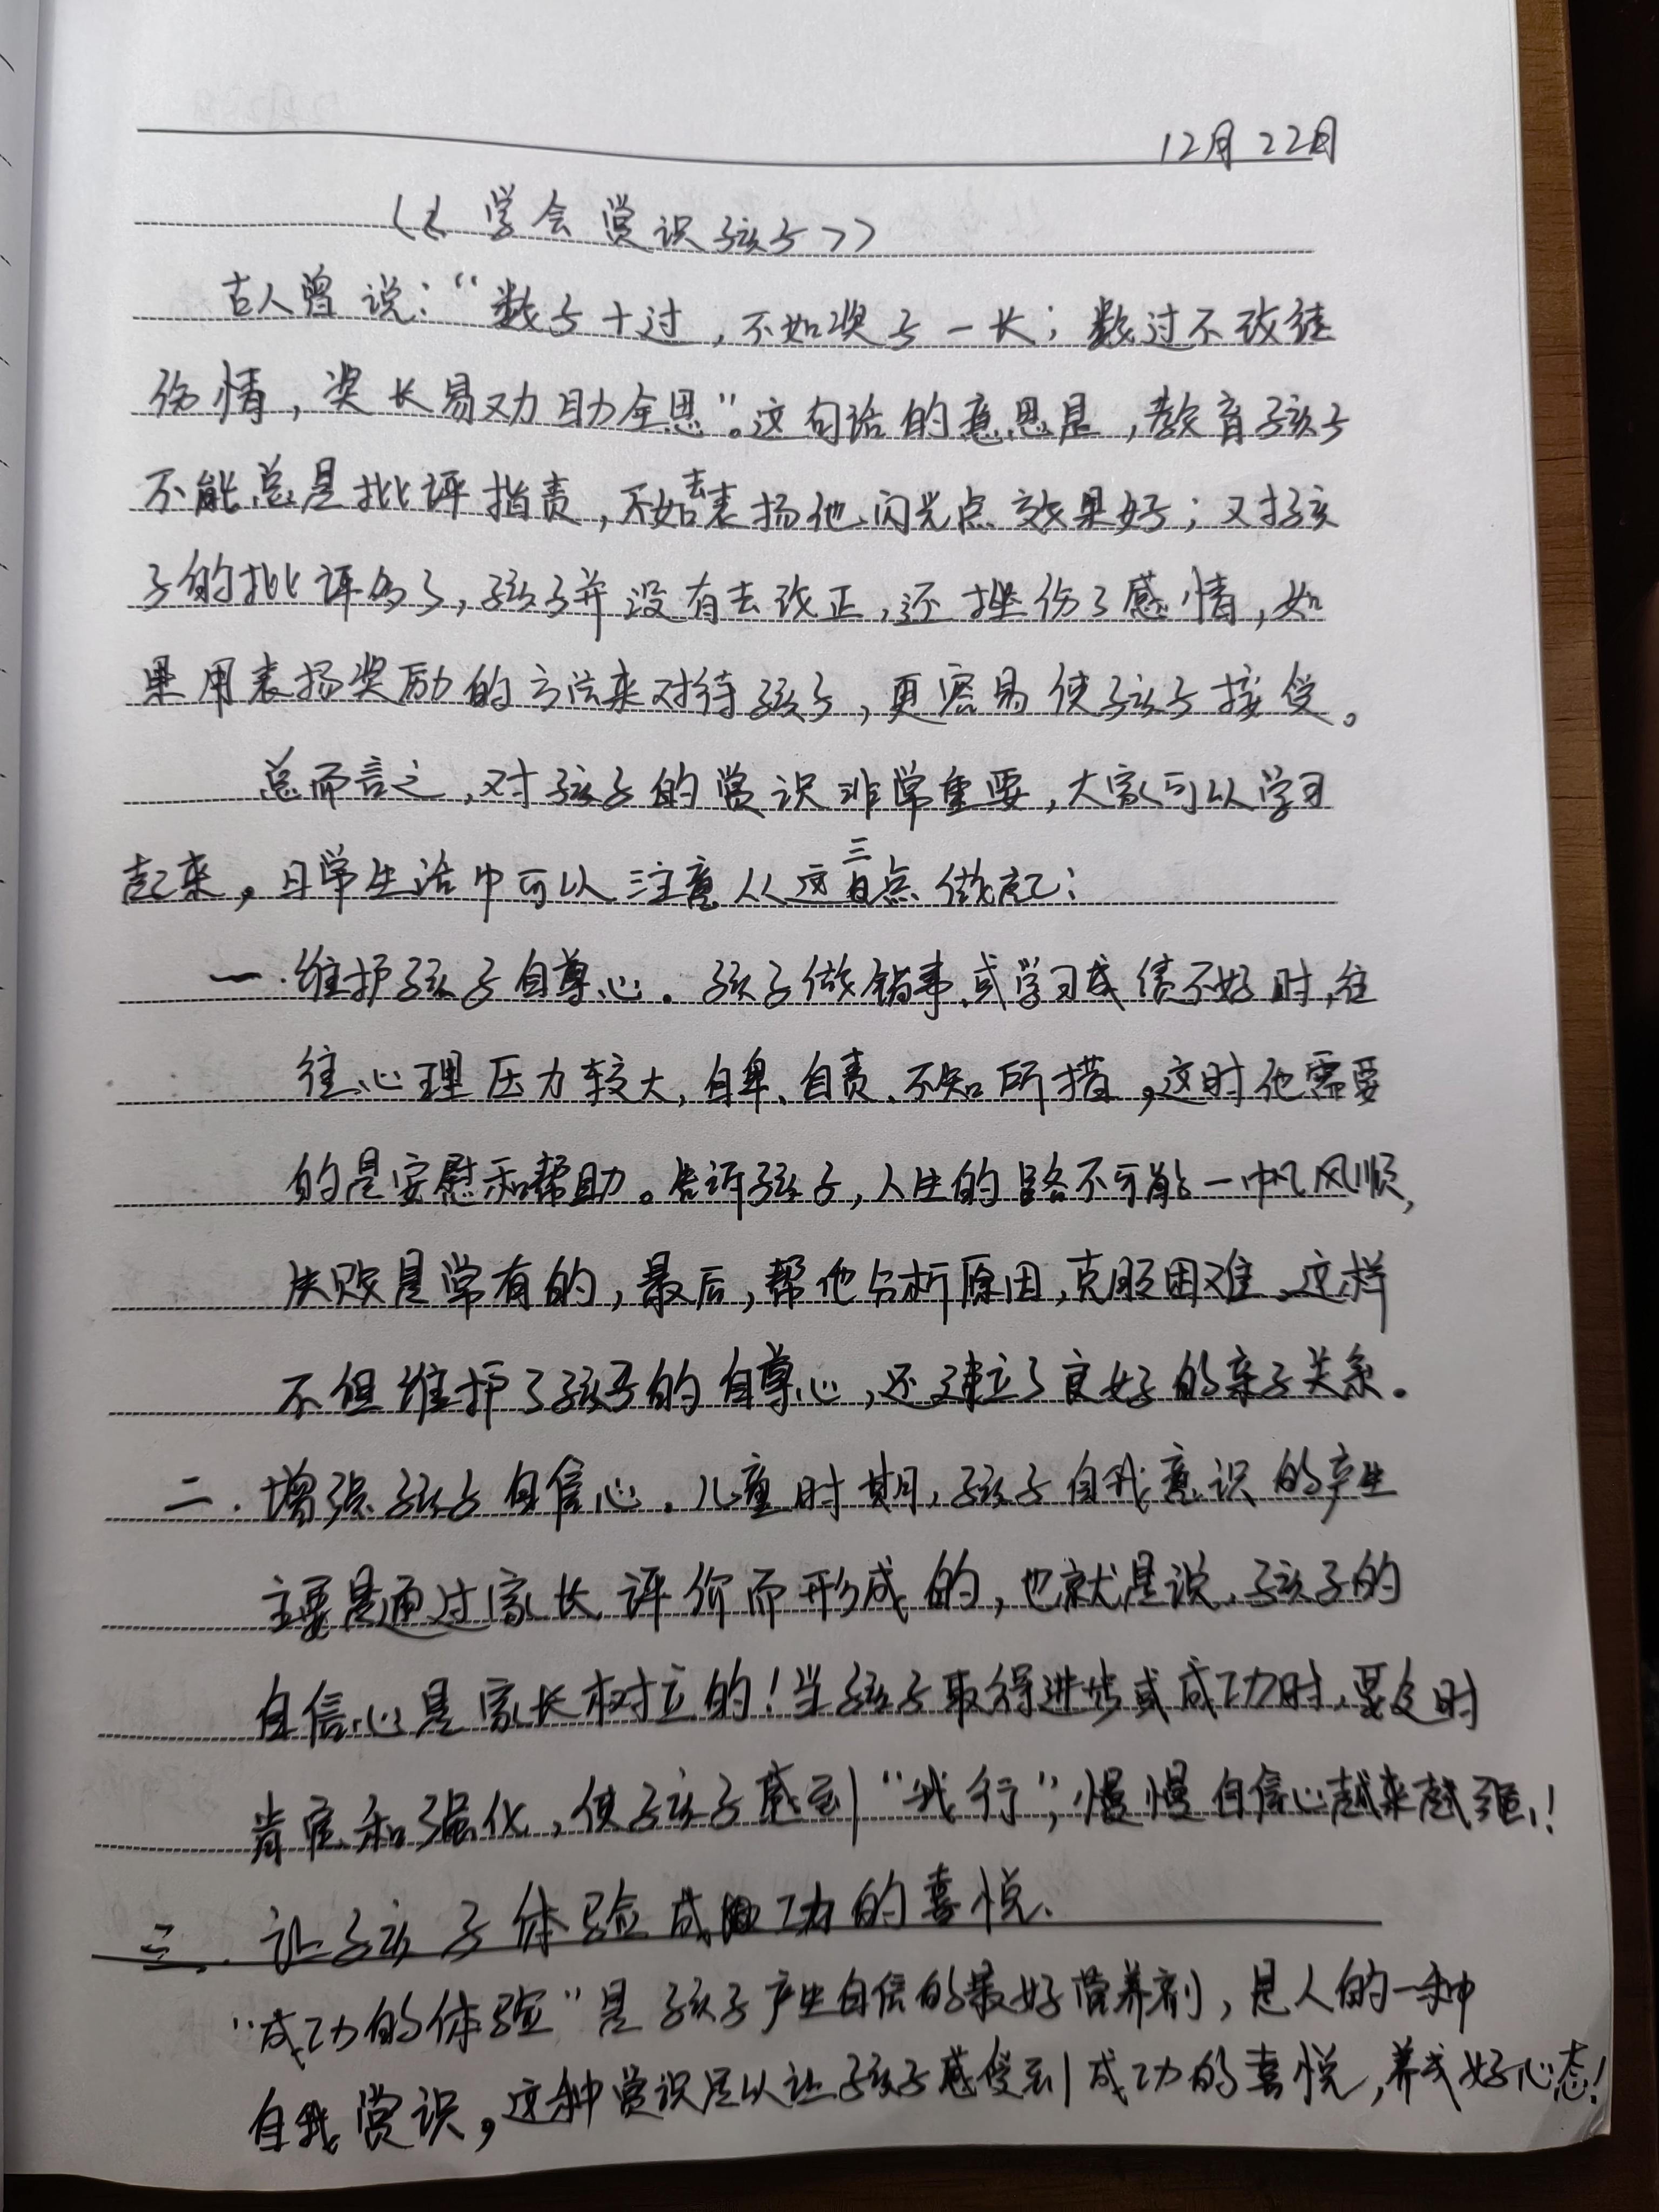 12月22日
《学会赏识孩子》
古人曾说：“数子十过，不如奖子一长；数过不改徒
伤情，奖长易劝助全恩”。这句话的意思是，教育孩子
不能总是批评指责，不如去表扬他闪光点效果好；又对孩
子的批评多了，孩子并没有去改正，还挫伤了感情，如
果用表扬奖励的方法来对待孩子，更容易使孩子接受。
总而言之，对孩子的赏识非常重要，大家可以学习
起来，日常生活中可以注意从这三点做起：
一.维护孩子自尊心。孩子做错事或学习成绩不好时，往
往心理压力较大，自卑、自责、不知所措，这时他需要
的是安慰和帮助。告诉孩子，人生的路不可能一帆风顺，
失败是常有的，最后，帮他分析原因，克服困难，这样
不但维护了孩子的自尊心，还建立了良好的亲子关系。
二.增强孩子自信心。儿童时期，孩子自我意识的产生
主要是通过家长评价而形成的，也就是说，孩子的
自信心是家长树立的！当孩子取得进步或成功时，要及时
肯定和强化，使孩子感到“我行”，慢慢自信心越来越强！
三.让孩子体验成功的喜悦、
“成功的体验”是孩子产生自信的最好营养剂，是人的一种
自我赏识，这种赏识足以让孩子感受到成功的喜悦，养成好心态！